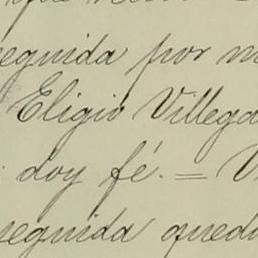 eguida por m
Eligio Villega
doy fé. = V
seguida qued